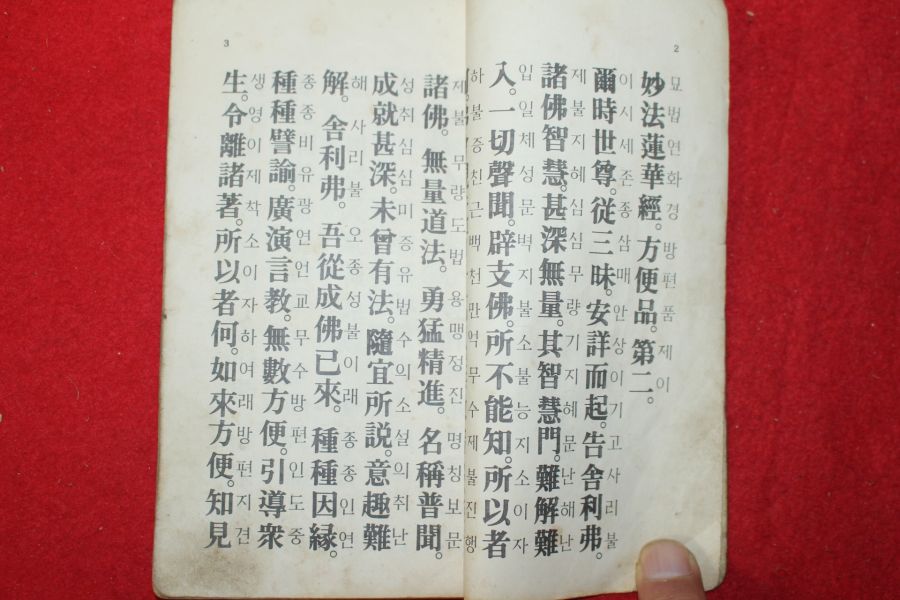 2
묘법연화경 방편품 제이
妙法蓮華經。方便品。第二。
이시세존 종삼매 안상이기 고사리불
爾時世尊。從三昧。安詳而起。告舍利弗。
제불지혜 심심무량 기지혜문 난해난
諸佛智慧。甚深無量。其智慧門。難解難
입 일체성문 벽지불 소불능지 소이자
入。一切聲聞。辟支佛。所不能知。所以者
하 불증친근 백천만억 무수제불 진행
3
제불 무량도법 용맹정진 명칭보문
諸佛。無量道法。勇猛精進。名稱普聞。
성취심심 미증유법 수의소설 의취난
成就甚深。未曾有法。隨宜所說。意趣難
해 사리불 오종성불이래 종종인연
解。舍利弗。吾從成佛已來。種種因緣。
종종비유 광연언교 무수방편 인도중
種種譬諭。廣演言敎。無數方便。引導衆
생 영이제착 소이자하 여래방편 지견
生。令離諸著。所以者何。如來方便。知見